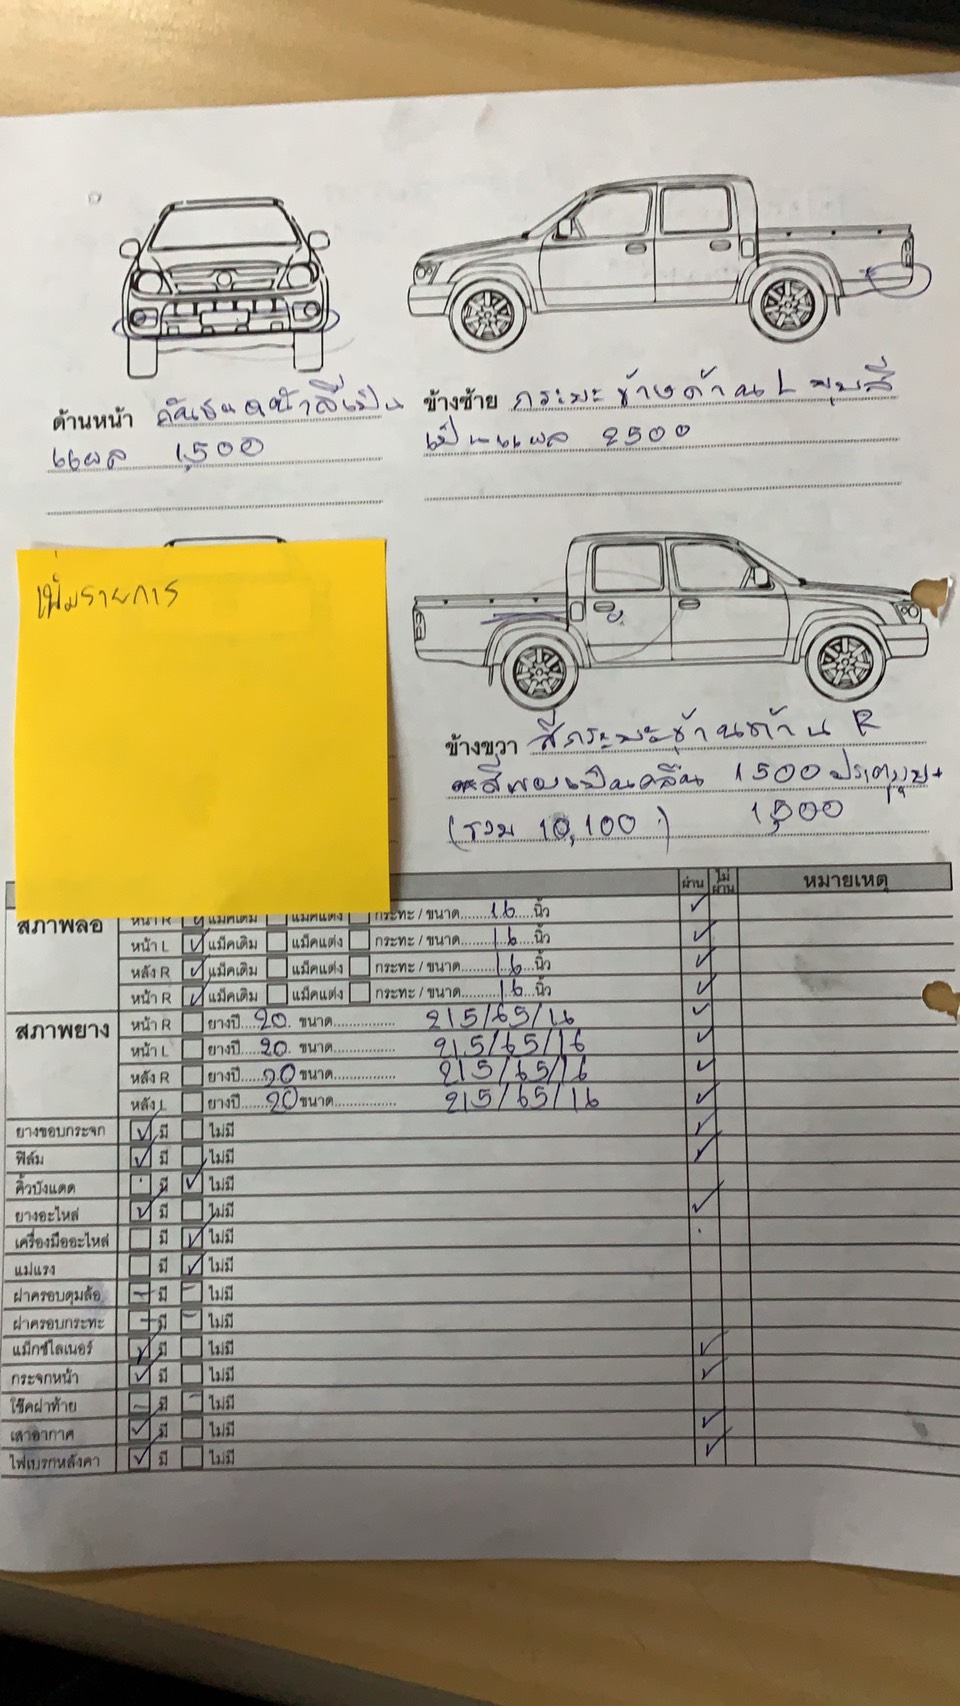 ด้านหน้า กันชนหน้าสีเป็น
แผล 1,500
ข้างซ้าย กระบะข้างด้าน L บุบสี
เป็นแผล 2500
เพิ่มรายการ
ข้างขวา สีกระบะข้างด้าน R
สีพองเป็นคลื่น 1500 ประตูบุบ+
(รวม 10,100) 1,500
ผ่าน ไม่ผ่าน หมายเหตุ
สภาพล้อ หน้า R แม็คเดิม แม็คแต่ง กระทะ / ขนาด........16....นิ้ว
หน้า L แม็คเดิม แม็คแต่ง กระทะ / ขนาด........16....นิ้ว
หลัง R แม็คเดิม แม็คแต่ง กระทะ / ขนาด........16....นิ้ว
หน้า R แม็คเดิม แม็คแต่ง กระทะ / ขนาด........16....นิ้ว
สภาพยาง หน้า R ยางปี...20.. ขนาด............... 215/65/16
หน้า L ยางปี...20.. ขนาด............... 215/65/16
หลัง R ยางปี...20 ขนาด............... 215/65/16
หลัง L ยางปี...20 ขนาด............... 215/65/16
ยางขอบกระจก มี ไม่มี
ฟิล์ม มี ไม่มี
คิ้วบังแดด มี ไม่มี
ยางอะไหล่ มี ไม่มี
เครื่องมืออะไหล่ มี ไม่มี
แม่แรง มี ไม่มี
ฝาครอบดุมล้อ มี ไม่มี
ฝาครอบกระทะ มี ไม่มี
แม็กซ์ไลเนอร์ มี ไม่มี
กระจกหน้า มี ไม่มี
โช๊คฝาท้าย มี ไม่มี
เสาอากาศ มี ไม่มี
ไฟเบรกหลังคา มี ไม่มี